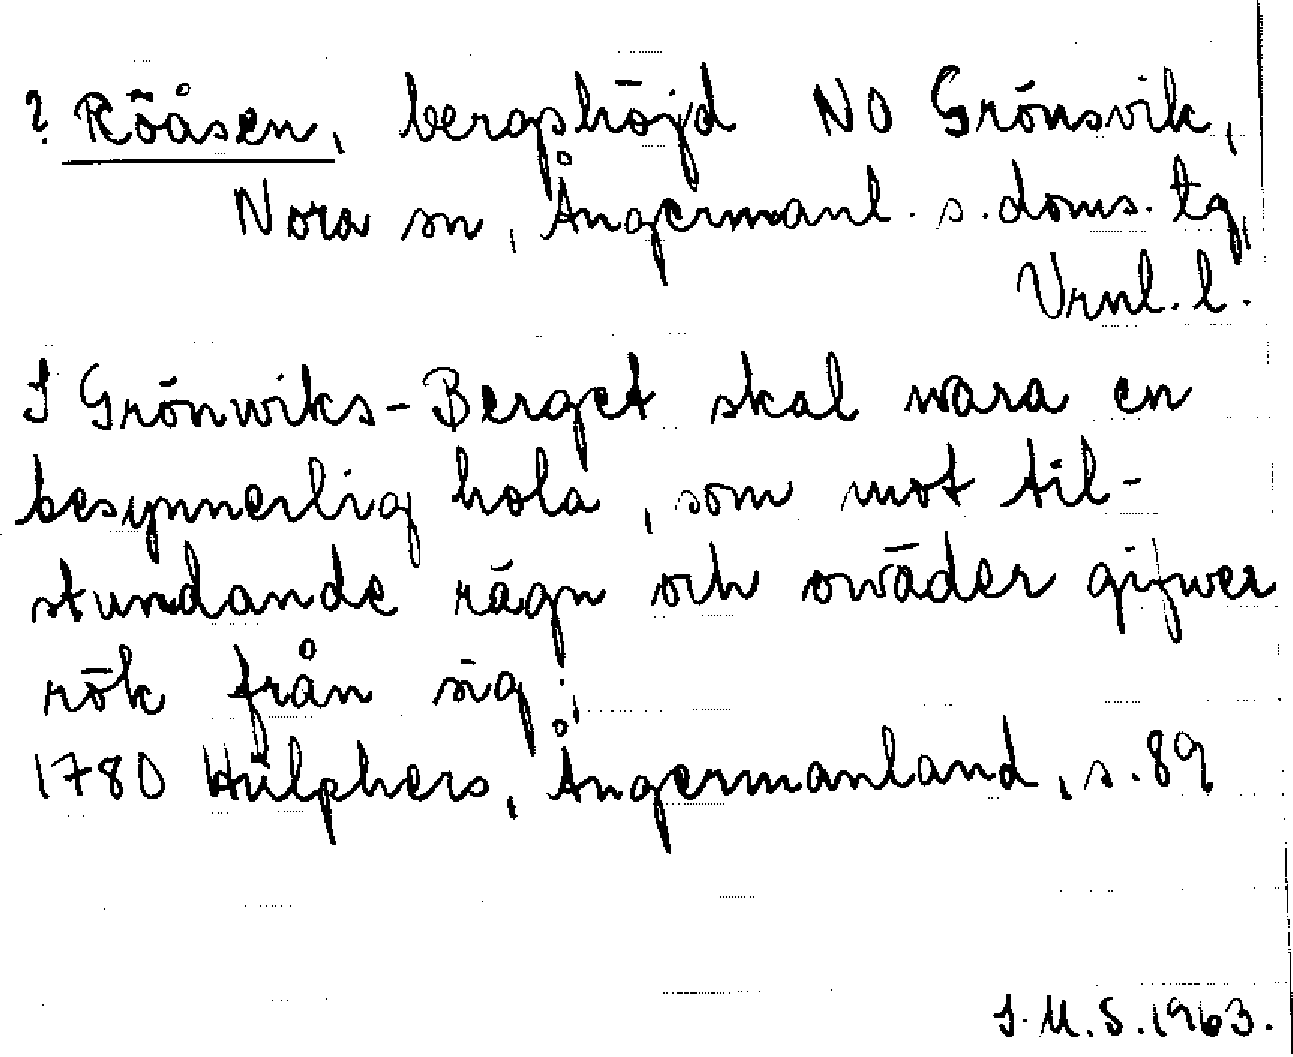 ? Röåsen, bergshöjd NO Grönsvik,
Nora sn, Ångermanl. s. doms. tg,
Vrnl. l.
I Grönwiks-Berget skal wara en
besynnerlig hola, som mot til-
stundande rägn och owäder gifwer
rök från sig;
1780 Hülphers, Ångermanland, s. 89
I. M. S. 1963.